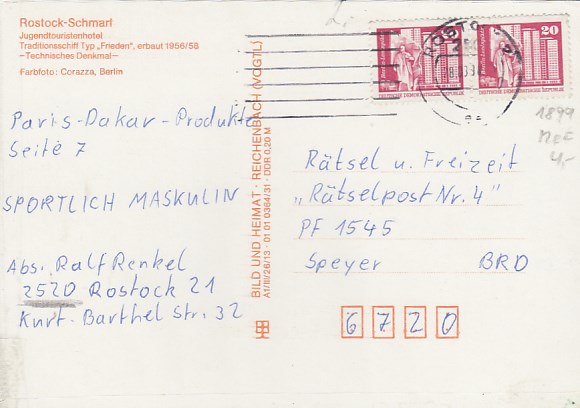 Rostock-Schmarl
Jugendtouristenhotel
Traditionsschiff Typ „Frieden", erbaut 1956/58
—Technisches Denkmal—
Farbfoto: Corazza, Berlin
Paris-Dakar-Produkte
Seite 7
SPORTLICH MASKULIN
Abs. Ralf Renkel
2520 Rostock 21
Kurt-Barthel Str. 32
BILD UND HEIMAT · REICHENBACH (VOGTL)
A1/III/26/13 · 01 01 0364/31 · DDR 0,20 M
ROSTOCK
20
DEUTSCHE DEMOKRATISCHE REPUBLIK
DEUTSCHE DEMOKRATISCHE REPUBLIK
1899
MeF
4,-
Rätsel u. Freizeit
„Rätselpost Nr. 4"
PF 1545
Speyer BRD
6720